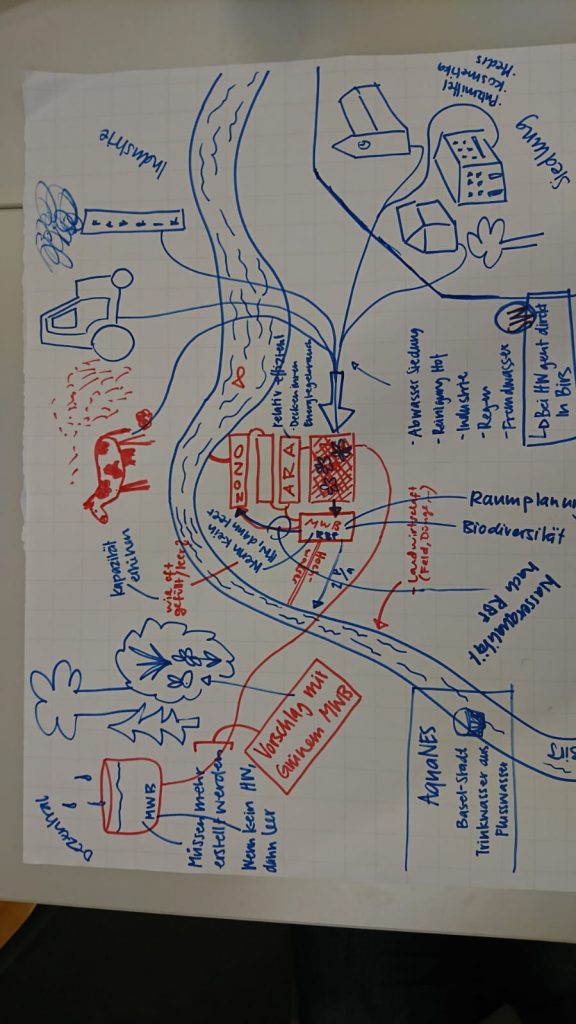 Industrie
FABRIK
Siedlung
· Putzmittel
· Kosmetika
· Medis
- Abwasser Siedlung
- Reinigung Hof
- Industrie
- Regen
- Fremdwasser
↳ Bei HW geht direkt
in Birs
relativ effizient
· Decken ihren
Energiegebrauch
OZON
ARA
MWB
RBF
Raumplanun
Biodiversität
Wenn kein
HW dann leer
wie oft
gefüllt/leer?
Kapazität
erhöhen
Hoch-
wasser
- Landwirtschaft
(Feld, Dünge...)
Wasserqualität
nach RBF
AquaNES
Basel-Stadt
Trinkwasser aus
Flusswasser
Dezentral
MWB
Müssen mehr
erstellt werden
Wenn kein HW,
dann leer
Vorschlag mit
Grünem MWB